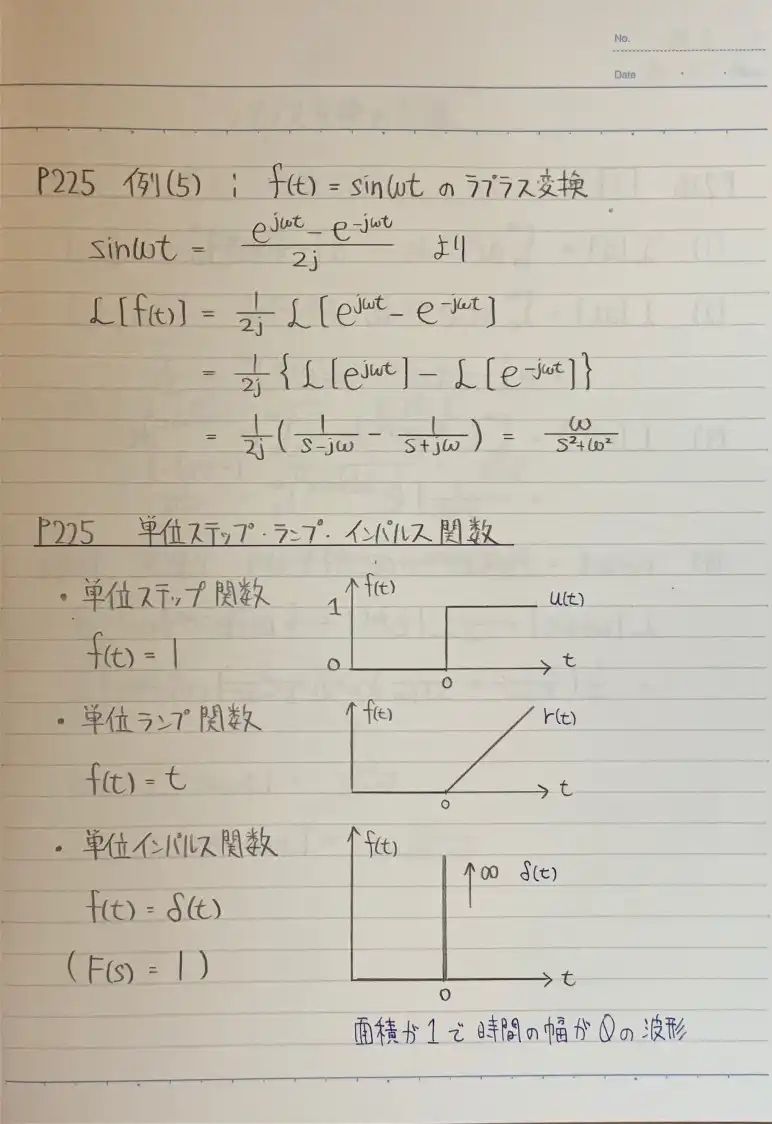 No.
Date
P225 例(5) ; f(t) = sinωt の ラプラス変換
sinωt = (e^{jωt} - e^{-jωt})/2j より
ℒ[f(t)] = 1/2j ℒ[e^{jωt} - e^{-jωt}]
= 1/2j {ℒ[e^{jωt}] - ℒ[e^{-jωt}]}
= 1/2j (1/(s-jω) - 1/(s+jω)) = ω/(s²+ω²)
P225 単位ステップ・ランプ・インパルス関数
・単位ステップ関数
f(t) = 1
f(t)
1
u(t)
0
t
0
・単位ランプ関数
f(t) = t
f(t)
r(t)
t
0
・単位インパルス関数
f(t) = δ(t)
(F(s) = 1)
f(t)
↑∞ δ(t)
t
0
面積が1で時間の幅が0の波形